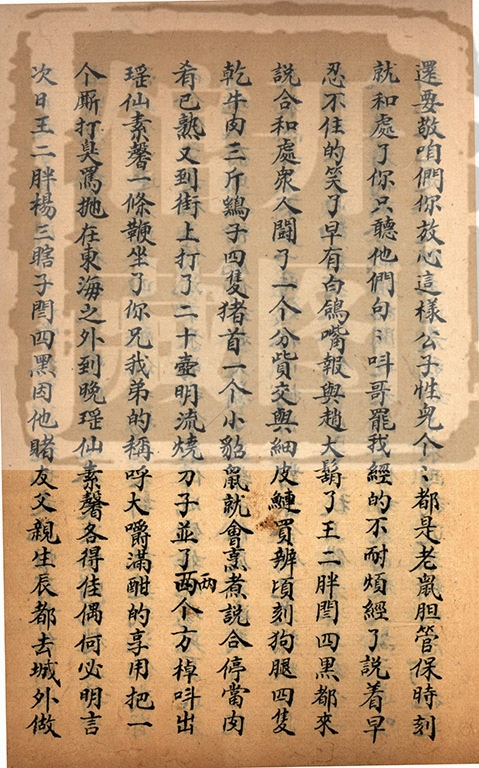 還要敬咱們你放心這樣公子性皃个〻都是老鼠胆管保時刻
就和處了你只聽他們句〻呌哥罷我經的不耐煩經了說着早
忍不住的笑了早有白鴿嘴報與趙大鬍了王二胖閆四黑都來
說合和處衆人鬪了一个分貲交與細皮鰱買辦頃刻狗腿四隻
乾牛肉三斤鷄子四隻猪首一个小貂鼠就會烹煮說合停當肉
肴已熟又到街上打了二十壺明流燒刀子並了兩个方棹呌出
瑶仙素馨一條鞭坐了你兄我弟的稱呼大嚼滿酣的享用把一
个厮打臭罵抛在東海之外到晚瑶仙素馨各得佳偶何必明言
次日王二胖楊三瞎子閆四黑因他賭友父親生辰都去城外做